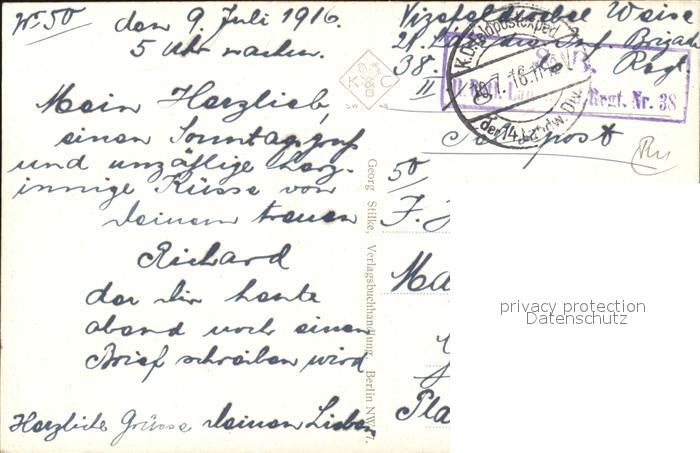 Nr 50 den 9. Juli 1916.
5 Uhr nachm.
Mein Herzlieb,
einen Sonntagsgruß
und unzälige herz-
innige Küsse von
deinem treuen
Richard
der dir heute
abend noch einen
Brief schreiben wird
Herzliche Grüsse deinen Lieben
K C
Georg Stilke, Verlagsbuchhandlung, Berlin NW. 7.
Vizefeldwebel Weise
21. Landw. Inf Brigade
38. Regt.
II
K.D. Feldpostexped.
10.7.16.11-12V
der 14. Landw. Div.
S.B.
II. Batl. Landw. Regt. Nr. 38
Feldpost
50
F.
Ma
Pla
privacy protection
Datenschutz